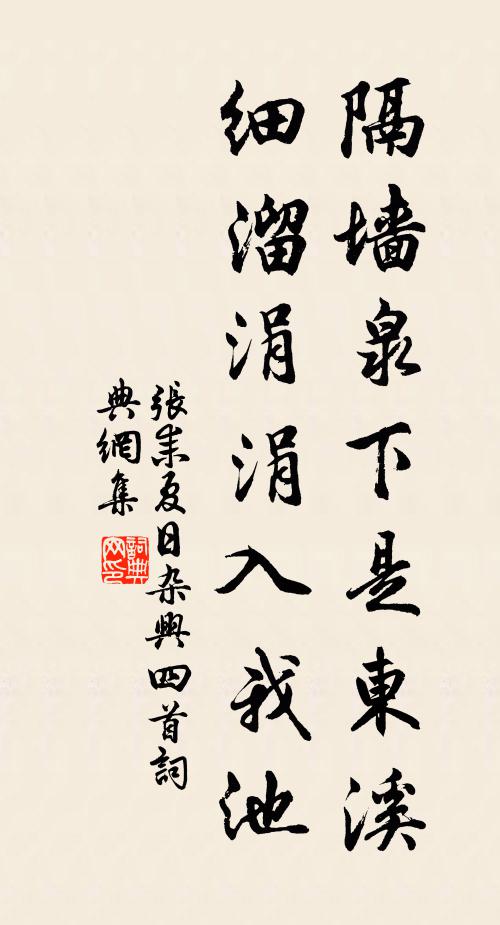 隔墙泉下是東溪
细溜涓涓入我池
張耒夏日杂興四首詞
典網集
詞典
网印